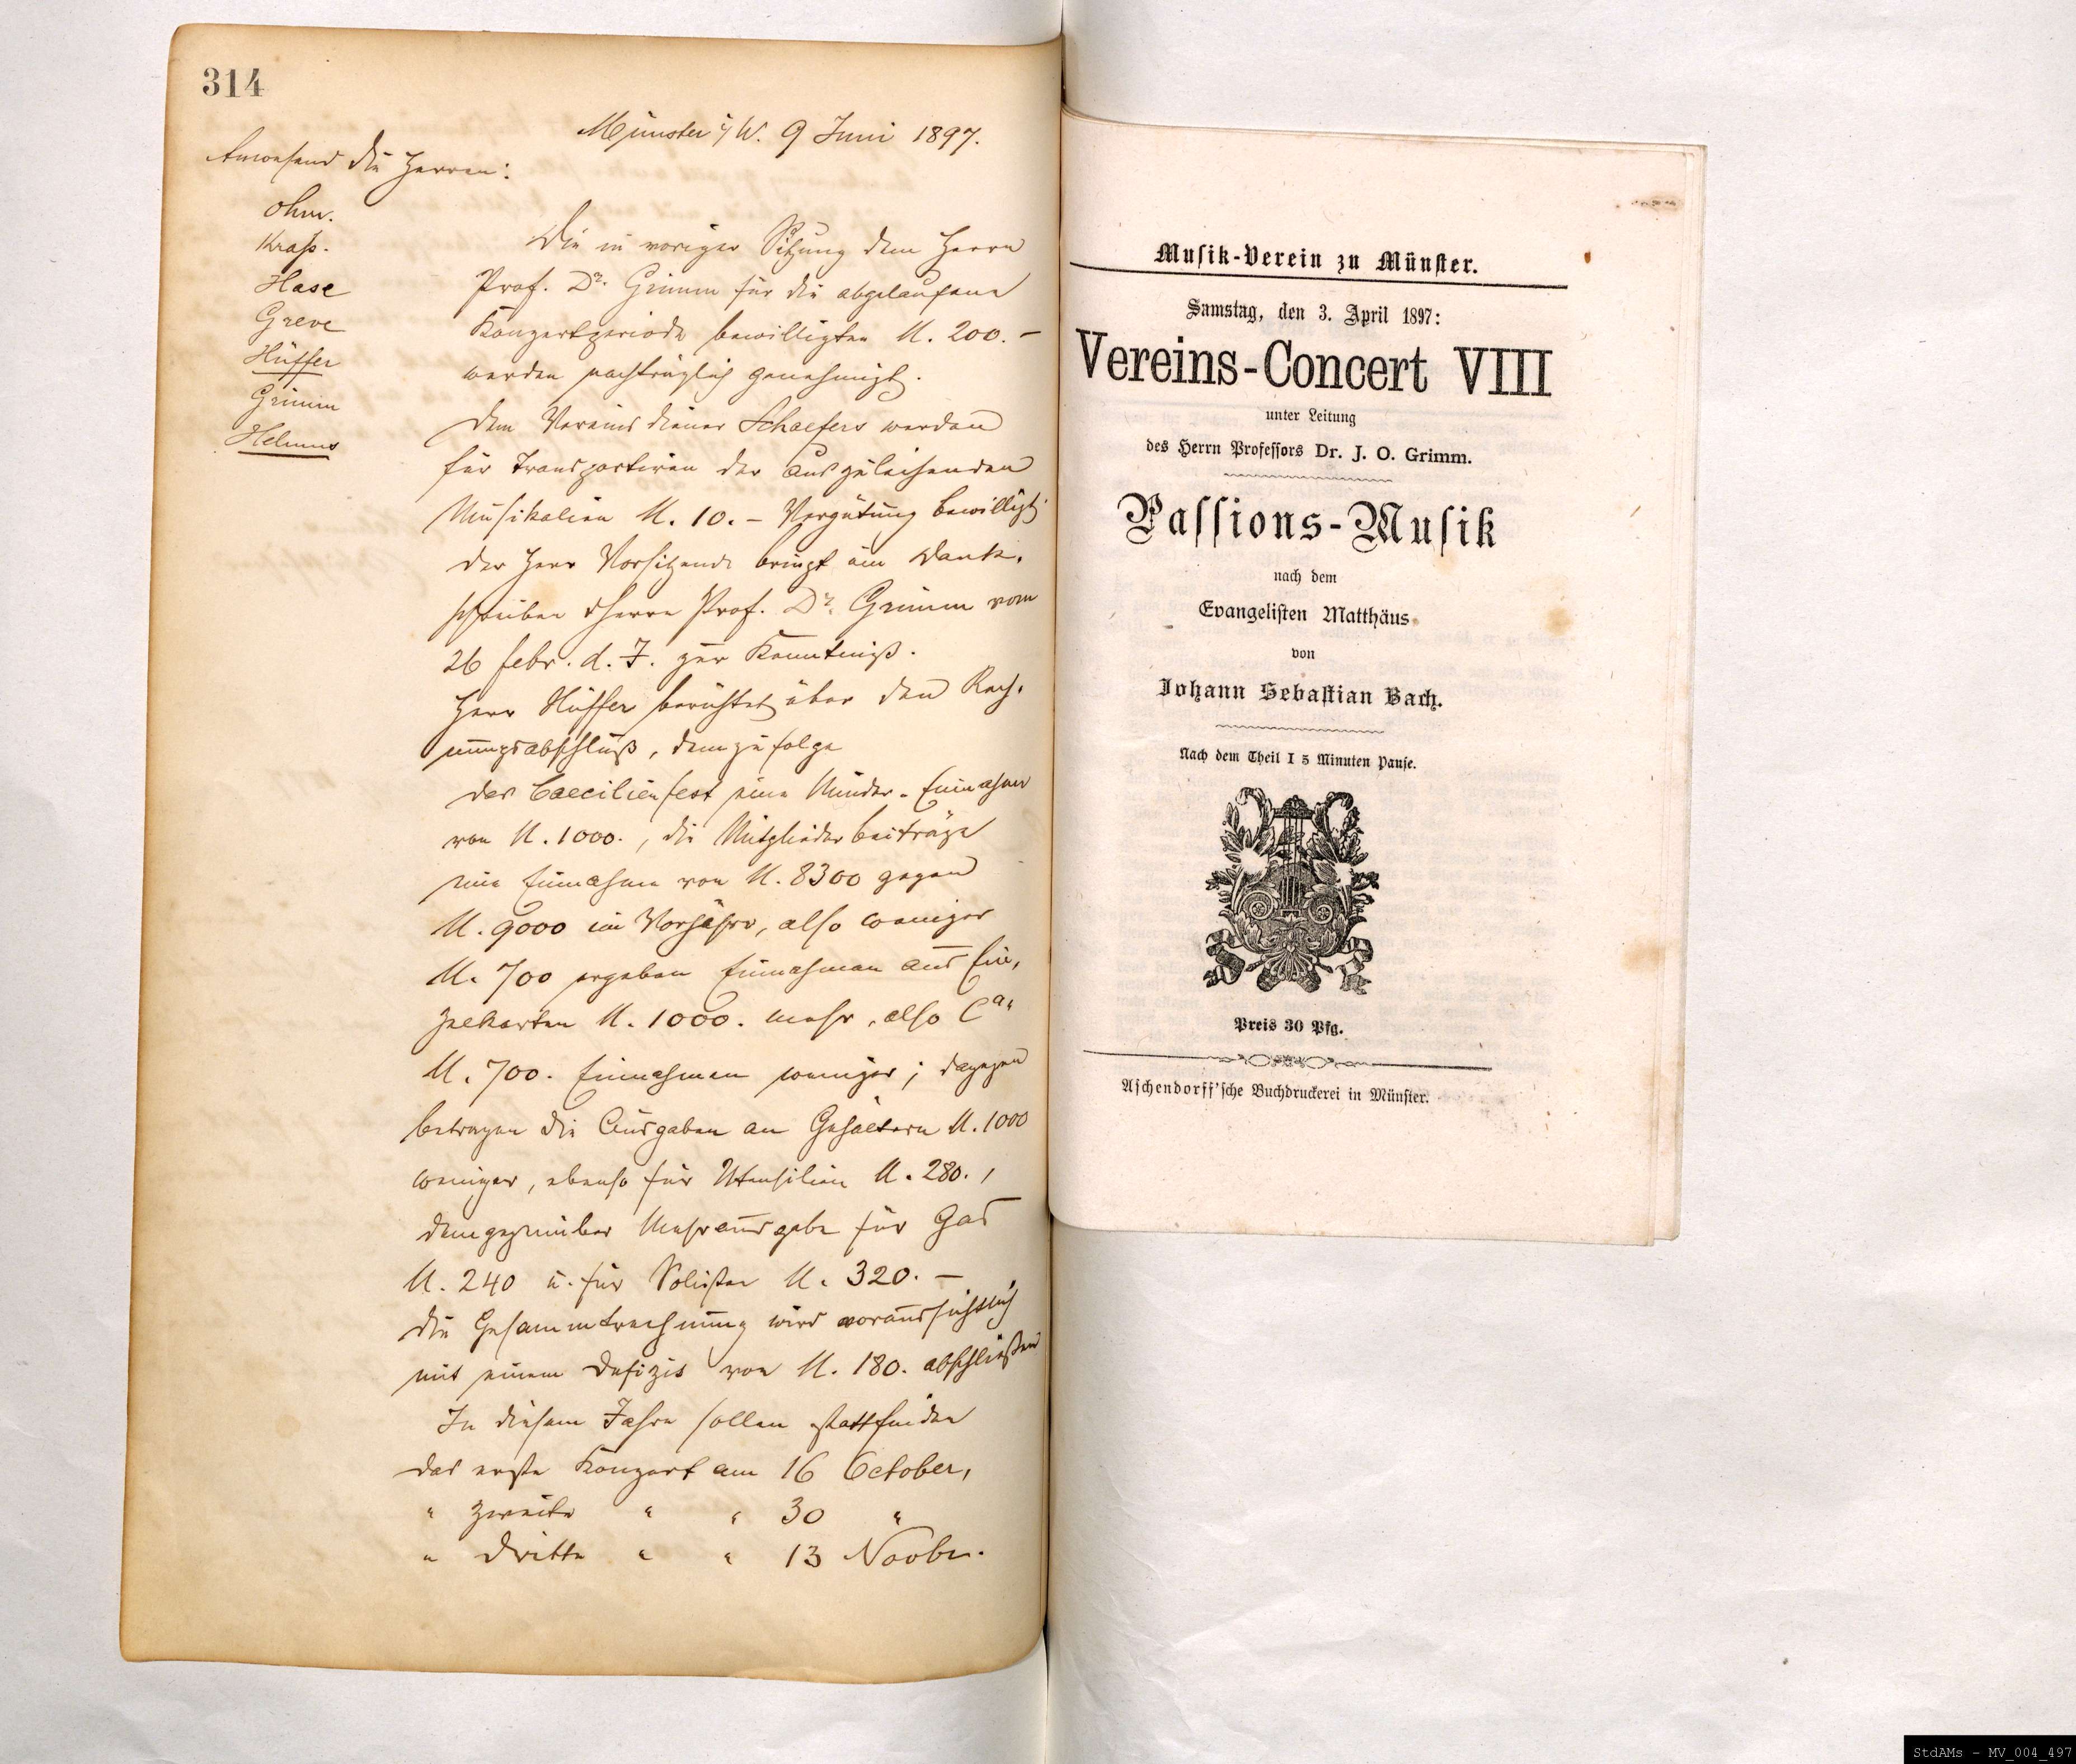 314
Münster i/W. 9 Juni 1897.
Anwesend die Herren:
Ohm.
Krass.
Hase
Greve
Hüffer
Grimm
Helmus
Die in voriger Sitzung dem Herrn
Prof. Dr. Grimm für die abgelaufene
Konzertperiode bewilligten M. 200.–
werden nachträglich genehmigt.
Dem Vereinsdiener Schaefers werden
für Transportiren der auszuleihenden
Musikalien M. 10.– Vergütung bewilligt
Der Herr Vorsitzende bringt ein Dank-
schreiben d Herrn Prof. Dr. Grimm vom
26 febr. d. J. zur Kenntniß.
Herr Hüffer berichtet über den Rech-
nungsabschluß, demzufolge
das Caecilienfest eine Minder-Einnahme
von M. 1000., die Mitgliederbeiträge
eine Einnahme von M. 8300 gegen
M. 9000 im Vorjahre, also weniger
M. 700 ergeben Einnahmen aus Ein-
zelkarten M. 1000. mehr, also Ca.
M. 700. Einnahmen weniger; dagegen
betragen die Ausgaben an Gehältern M. 1000
weniger, ebenso für Utensilien M. 280.,
demgegenüber Mehrausgabe für Gas
M. 240 u. für Solisten M. 320.–
Die Gesammtrechnung wird voraussichtlich
mit einem Defizis von M. 180. abschließen
In diesem Jahre sollen stattfinden
das erste Konzert am 16 October,
" zweite " " 30 "
" dritte " " 13 Novbr.
Musik-Verein zu Münster.
Samstag, den 3. April 1897:
Vereins-Concert VIII
unter Leitung
des Herrn Professors Dr. J. O. Grimm.
Passions-Musik
nach dem
Evangelisten Matthäus
von
Johann Sebastian Bach.
Nach dem Theil I 5 Minuten Pause.
Preis 30 Pfg.
Aschendorff'sche Buchdruckerei in Münster.
StdAMs - MV_004_497